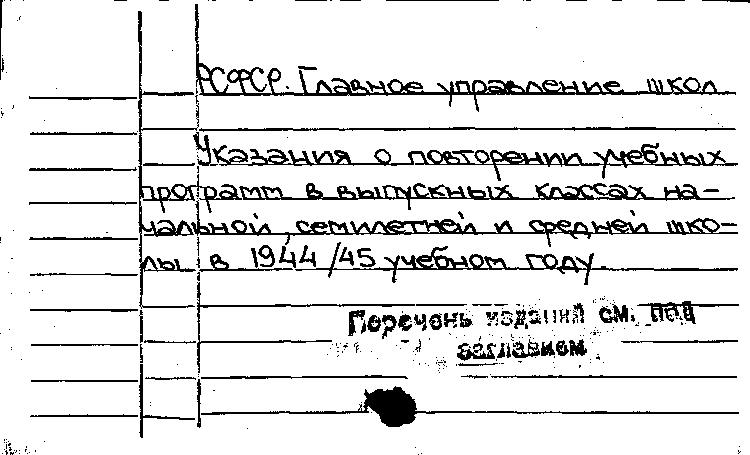 РСФСР. Главное управление школ
Указания о повторении учебных
программ в выпускных классах на-
чальной, семилетней и средней шко-
лы в 1944/45 учебном году
Перечень изданий см. под
заглавием